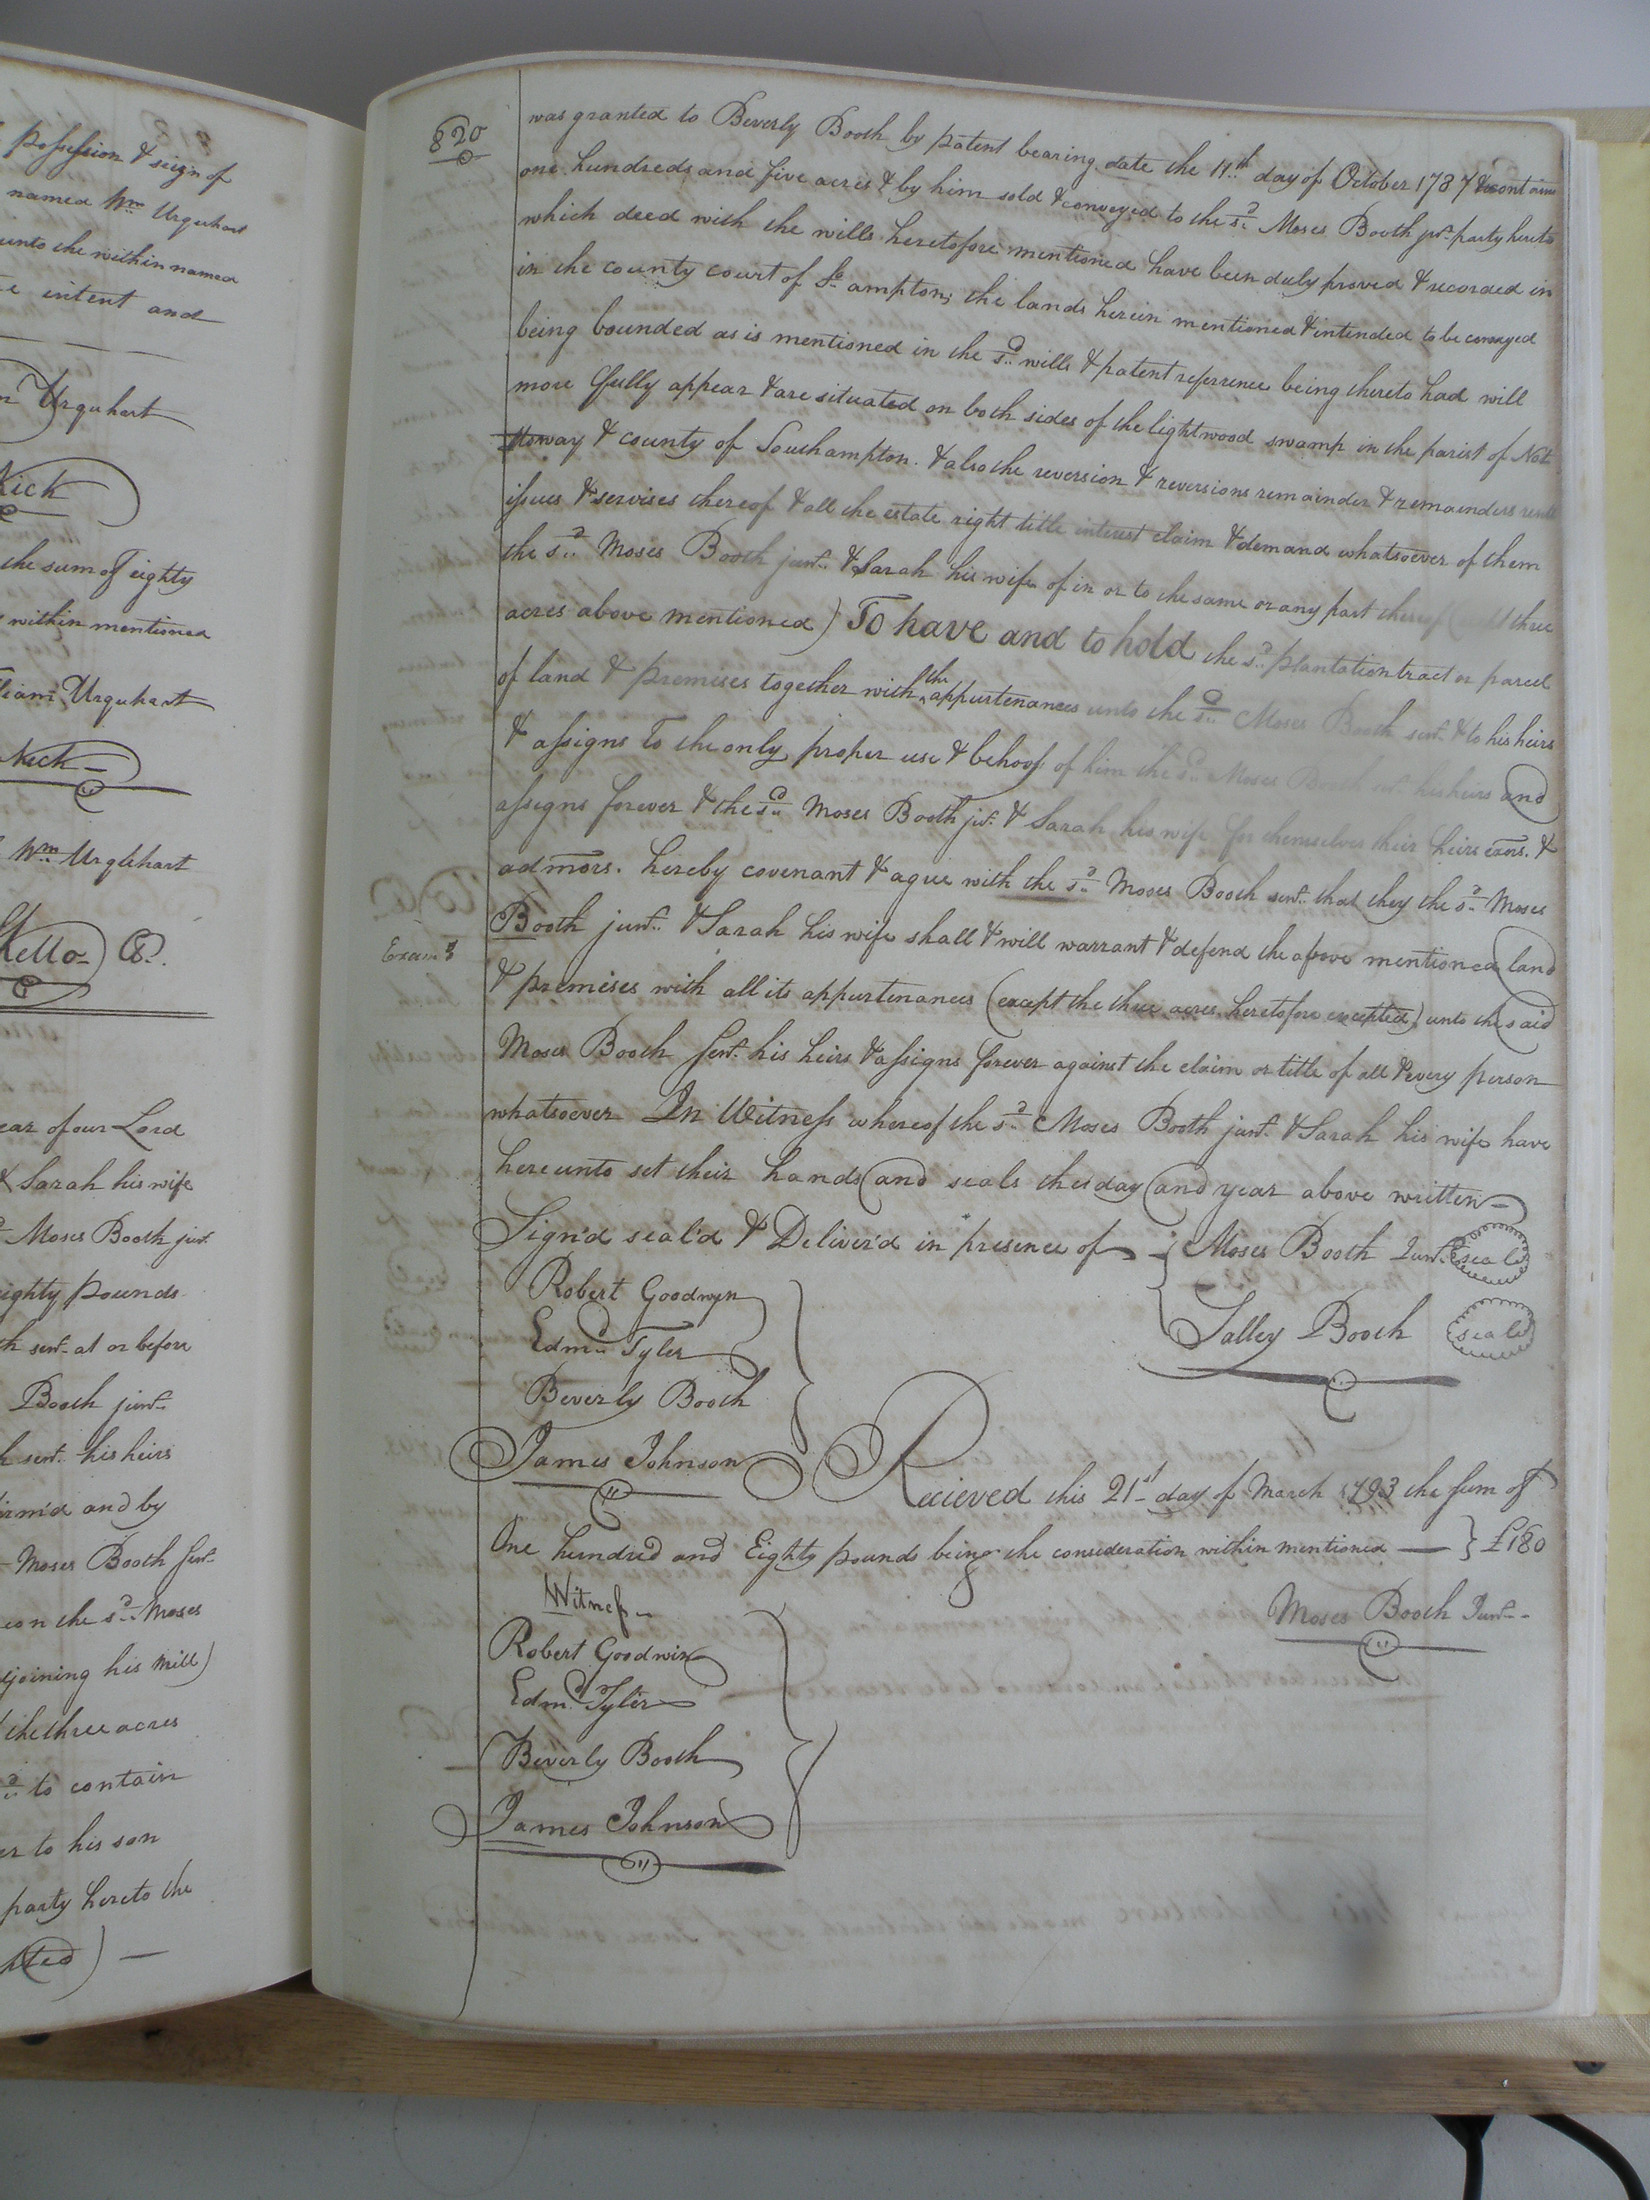 possession & seizin of
named Wm Urquhart
unto the within named
intent and
Urquhart
Kick
the sum of eighty
within mentioned
Urquhart
Nick
Wm Urquhart
Kello
year of our Lord
& Sarah his wife
Moses Booth junr.
eighty pounds
senr. at or before
Booth junr.
senr. his heirs
and by
Moses Booth Senr.
on the sd. Moses
adjoining his mill)
the three acres
to contain
to his son
party hereto the
820
was granted to Beverly Booth by patent bearing date the 11th day of October 1787 & contains
one hundred and five acres & by him sold & conveyed to the sd. Moses Booth jur. party hereto
which deed with the wills heretofore mentioned have been duly proved & recorded in
in the county court of So.ampton, the lands herein mentioned & intended to be conveyed
being bounded as is mentioned in the sd. wills & patent reference being thereto had will
more fully appear & are situated on both sides of the lightwood swamp in the parist of Not
toway & county of Southampton. & also the reversion & reversions remainder & remainders rents
issues & servises thereof & all the estate right title interest claim & demand whatsoever of them
the sd. Moses Booth junr. & Sarah his wife of in or to the same or any part thereof three
acres above mentioned) To have and to hold the sd. plantation tract or parcel
of land & premises together with the appurtenances unto the sd. Moses Booth senr. & to his heirs
& assigns to the only proper use & behoof of him the sd. Moses Booth senr. his heirs and
assigns forever & the sd. Moses Booth jur. & Sarah his wife for themselves their heirs exors. &
admors. hereby covenant & agree with the sd. Moses Booth senr. that they the sd. Moses
Booth junr. & Sarah his wife shall & will warrant & defend the above mentioned land
Examd.
& premises with all its appurtenances (except the three acres heretofore excepted) unto the said
Moses Booth Senr. his heirs & assigns forever against the claim or title of all & every person
whatsoever In Witness whereof the sd. Moses Booth junr. & Sarah his wife have
hereunto set their hands and seals the day and year above written
Sign'd seal'd & Deliver'd in presence of Moses Booth Junr. seal
Robert Goodwyn
Edmd. Tyler Salley Booth seal
Beverly Booth
James Johnson
Recieved this 21st day of March 1793 the sum of
One hundred and Eighty pounds being the consideration within mentioned — } £180
Witness
Moses Booth Junr.
Robert Goodwin
Edmd. Tyler
Beverly Booth
James Johnson